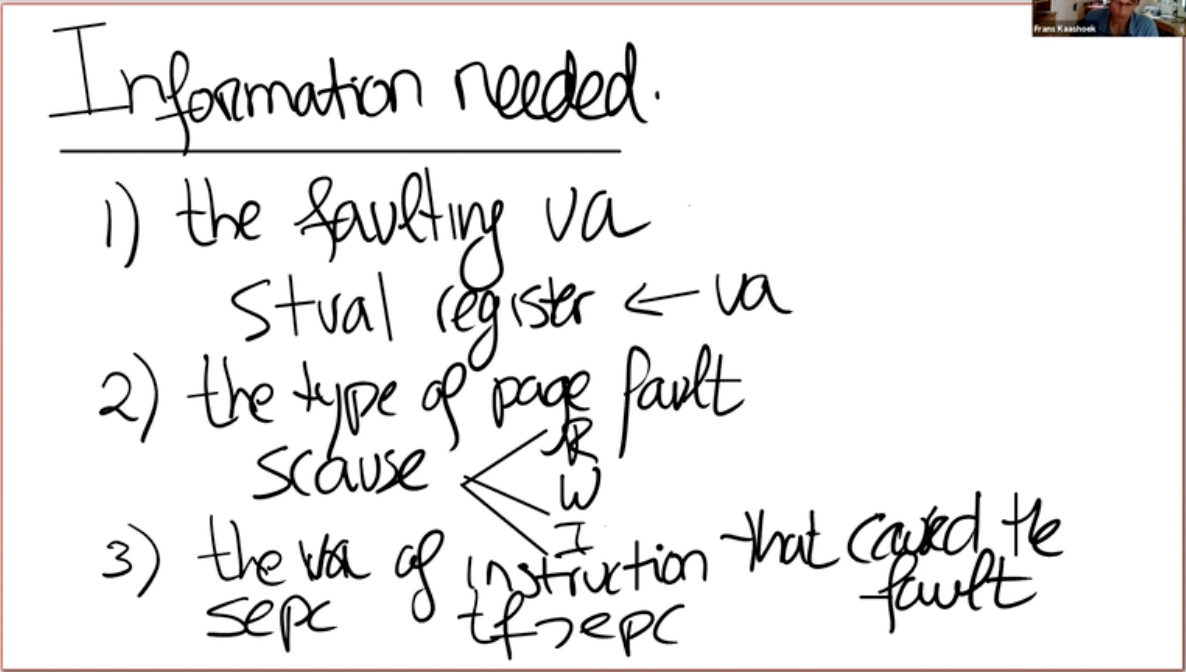 Frans Kaashoek
Information needed.
1) the faulting va
stval register ← va
2) the type of page fault
scause
R
W
I
3) the va of instruction that caused the
fault
sepc tf->epc